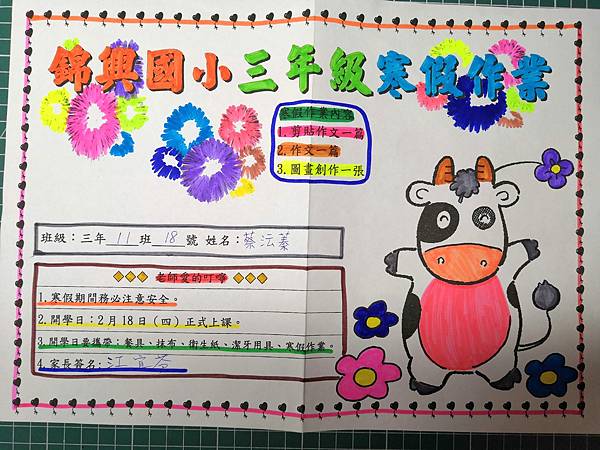 錦興國小三年級寒假作業
寒假作業內容
1.剪貼作文一篇
2.作文一篇
3.圖畫創作一張
班級：三年 11 班 18 號 姓名：蔡沄蓁
老師愛的叮嚀
1.寒假期間務必注意安全。
2.開學日：2月18日（四）正式上課。
3.開學日要攜帶：餐具、抹布、衛生紙、潔牙用具、寒假作業。
4.家長簽名：